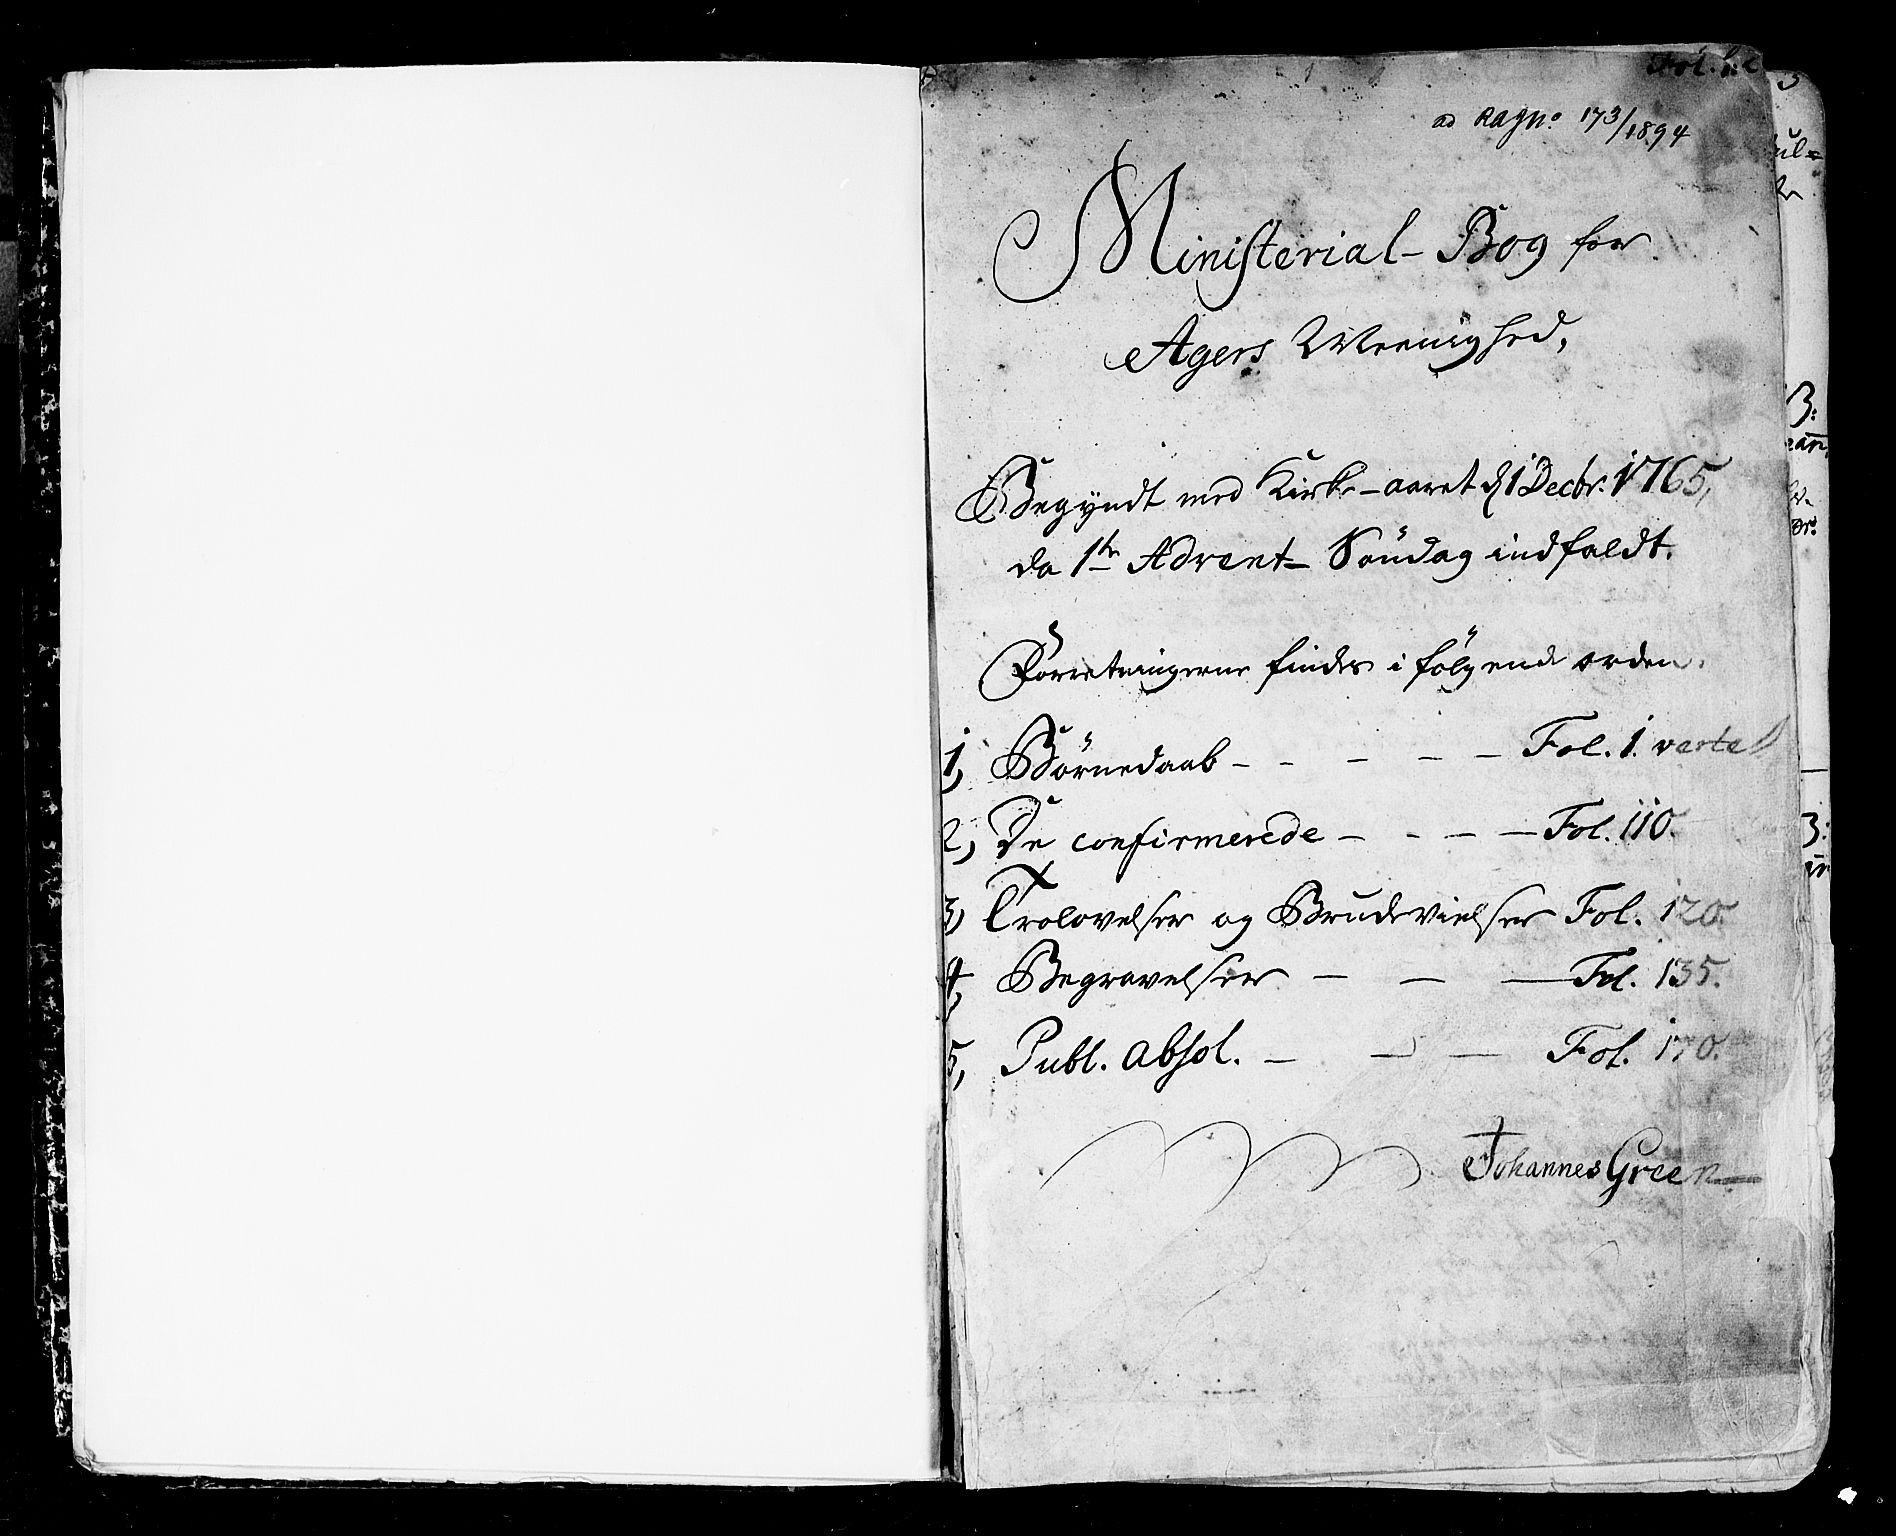 Fol. 1.
ad Ragno. 173/1894
Ministerial-Bog for
Agers Meenighed,
Begyndt med Kirke-aaret d 1 Decbr. 1765,
da 1te Advent-Søndag indfaldt.
Forretningerne findes i følgende orden.
1, Børnedaab - - - - - Fol. 1. verte
2, De confirmerede - - - - Fol. 110.
3, Trolovelser og Brudevielser Fol. 120.
4, Begravelser - - - Fol. 135.
5, Publ. absol. - - - Fol. 170.
Johannes Green